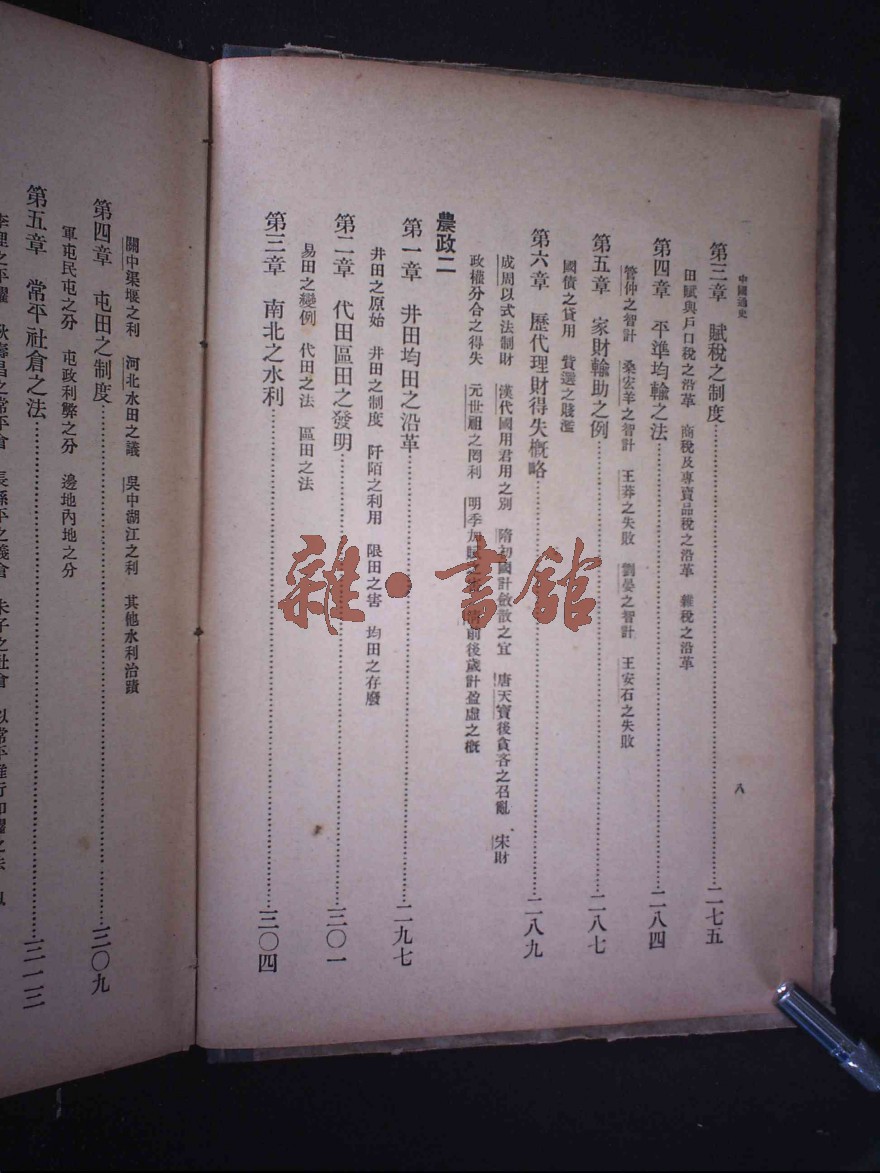 中國通史
八
第三章　賦稅之制度……二七五
田賦與戶口稅之沿革　商稅及專賣品稅之沿革　雜稅之沿革
第四章　平準均輸之法……二八四
管仲之智計　桑宏羊之智計　王莽之失敗　劉晏之智計　王安石之失敗
第五章　家財輸助之例……二八七
國債之貸用　貲選之賤濫
第六章　歷代理財得失概略……二八九
成周以式法制財　漢代國用君用之別　隋初國計斂散之宜　唐天寶後貪吝之召亂　宋財
政權分合之得失　元世祖之罔利　明季加賦之 前後歲計盈虛之概
農政二
第一章　井田均田之沿革……二九七
井田之原始　井田之制度　阡陌之利用　限田之害　均田之存廢
第二章　代田區田之發明……三〇一
易田之變例　代田之法　區田之法
第三章　南北之水利……三〇四
關中渠堰之利　河北水田之議　吳中湖江之利　其他水利治蹟
第四章　屯田之制度……三〇九
軍屯民屯之分　屯政利弊之分　邊地內地之分
第五章　常平社倉之法……三一三
李悝之平糶　耿壽昌之常平倉　長孫平之義倉　朱子之社倉
雜·書館